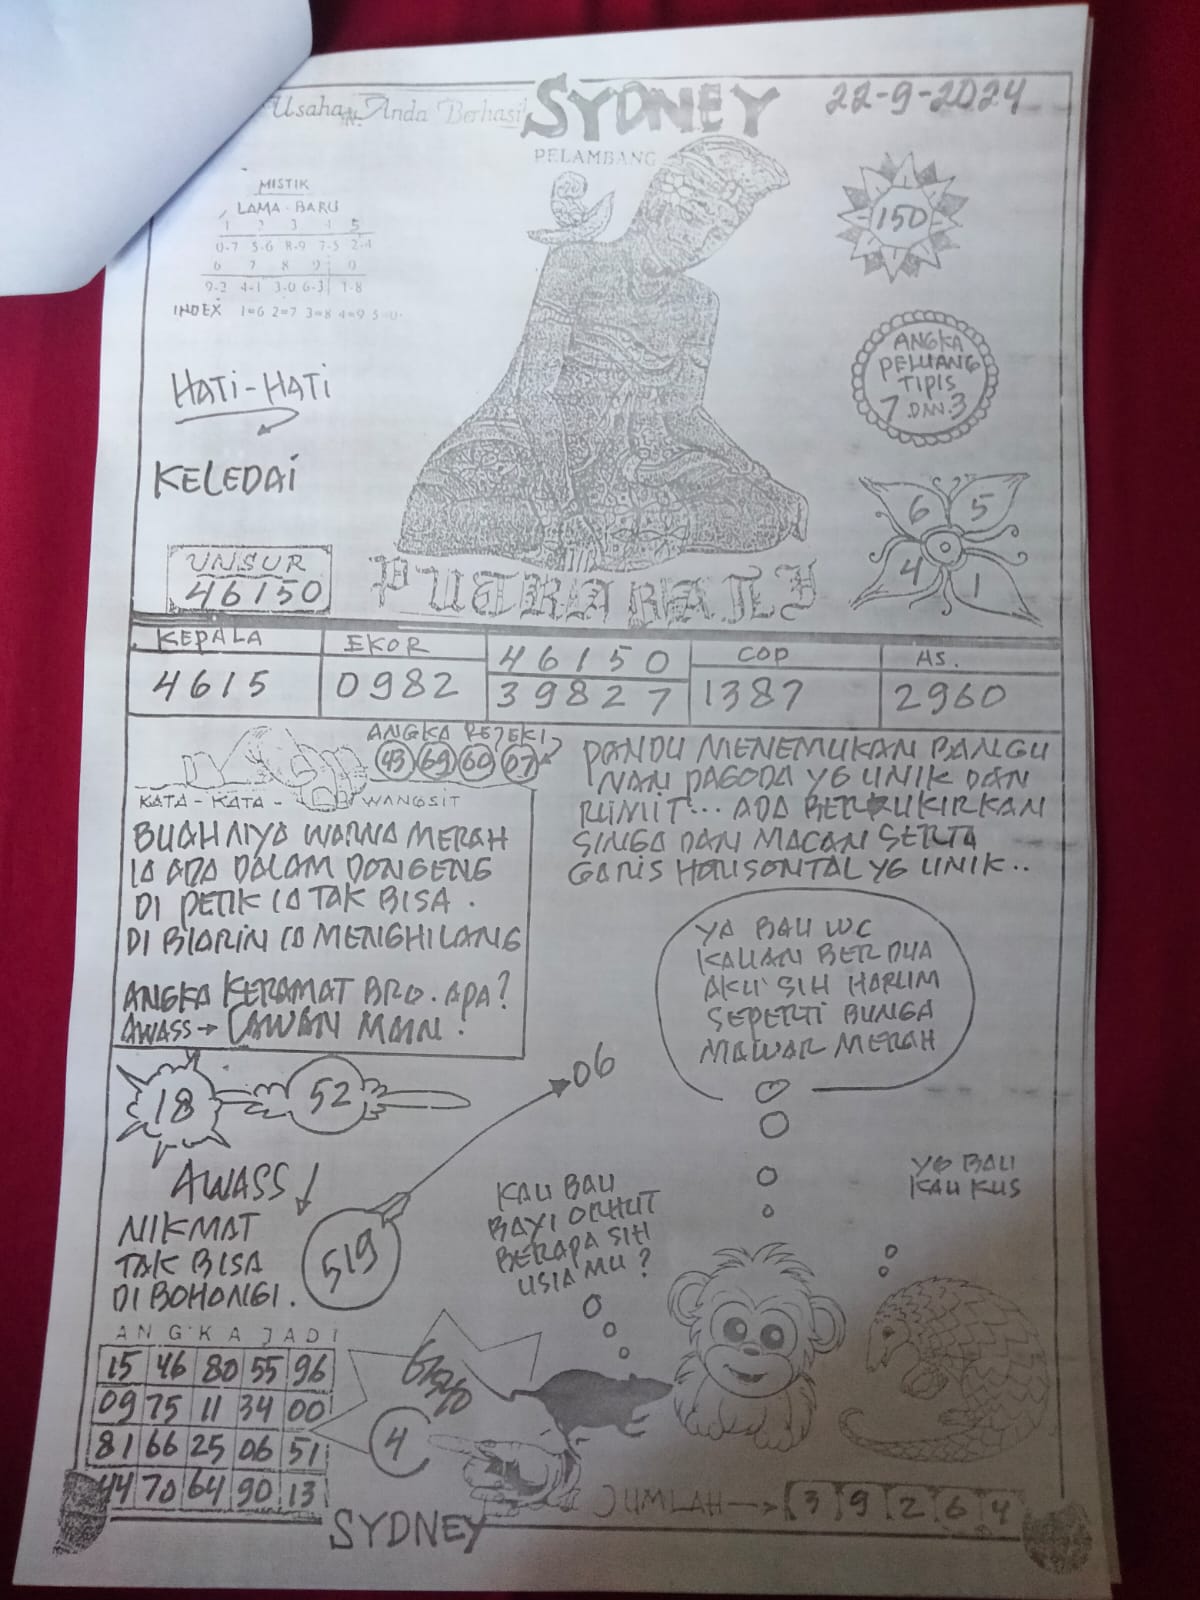 Usaha Anda Berhasil
SYDNEY
22-9-2024
PELAMBANG
MISTIK
LAMA - BARU
1 2 3 4 5
0-7 5-6 8-9 7-5 2-4
6 7 8 9 0
9-2 4-1 3-0 6-3 1-8
INDEX 1=6 2=7 3=8 4=9 5=0
150
ANGKA
PELUANG
TIPIS
7 DAN 3
HATI-HATI
KELEDAI
6 5
4 1
UNSUR
46150
PUTRA BALI
KEPALA EKOR 46150 COP AS.
4615 0982 39827 1387 2960
ANGKA REJEKI
93 69 60 07
KATA - KATA - WANGSIT
BUAHNYA WARNA MERAH
IA ADA DALAM DONGENG
DI PETIK IA TAK BISA.
DI BIARIN IA MENGHILANG
ANGKA KERAMAT BRO. APA?
AWASS → LAWAN MAIN.
PANDU MENEMUKAN BANGU
NAN PAGODA YG UNIK DAN
RUMIT... ADA BERUKIRKAN
SINGA DAN MACAN SERTA
GARIS HORISONTAL YG UNIK..
YA BAU WC
KALIAN BERDUA
AKU SIH HARUM
SEPERTI BUNGA
MAWAR MERAH
18 52
06
AWASS
NIKMAT
TAK BISA
DI BOHONGI.
519
KAU BAU
BAYI
BERAPA SIH
USIA MU?
YG BAU
KAU KUS
ANGKA JADI
15 46 80 55 96
09 75 11 34 00
81 66 25 06 51
44 70 64 90 13
4
JUMLAH → 3 9 2 6 4
SYDNEY